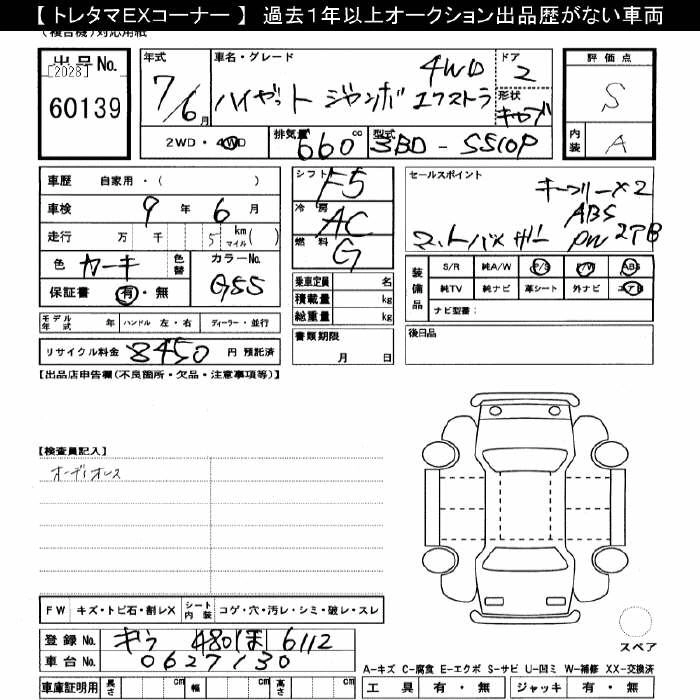 【 トレタマEXコーナー 】 過去1年以上オークション出品歴がない車両
(複合機)対応用紙
出品No.
[2028]
60139
年式
7/6月
車名・グレード
4WD
ハイゼット ジャンボ エクストラ
ドア
2
形状
キャブ
評価点
S
内装
A
2WD・4WD
排気量
660cc
型式
3BD-S510P
車歴 自家用・( )
車検 9年 6月
走行 万 千 5 km マイル ( )
色 カーキ 色替
カラーNo.
G55
保証書 有・無
シフト
F5
冷房
AC
燃料
G
セールスポイント
キーフリー×2
ABS
マットバイザー PW 2AB
装備品
S/R 純A/W P/S P/W ABS
純TV 純ナビ 革シート 外ナビ エアB
ナビ型番:
乗車定員 名
積載量 kg
総重量 kg
モデル年式 年 ハンドル 左・右 ディーラー・並行
書類期限
月 日
後日品
リサイクル料金 8450 円 預託済
【出品店申告欄(不良箇所・欠品・注意事項等)】
【検査員記入】
オーディオレス
FW キズ・トビ石・割レX シート内装 コゲ・穴・汚レ・シミ・破レ・スレ
登録No. 480 6112
車台No. 0627130
スペア
A-キズ C-腐食 E-エクボ S-サビ U-凹ミ W-補修 XX-交換済
車庫証明用 長さ cm 幅 cm 高さ cm
工具 有・無 ジャッキ 有・無